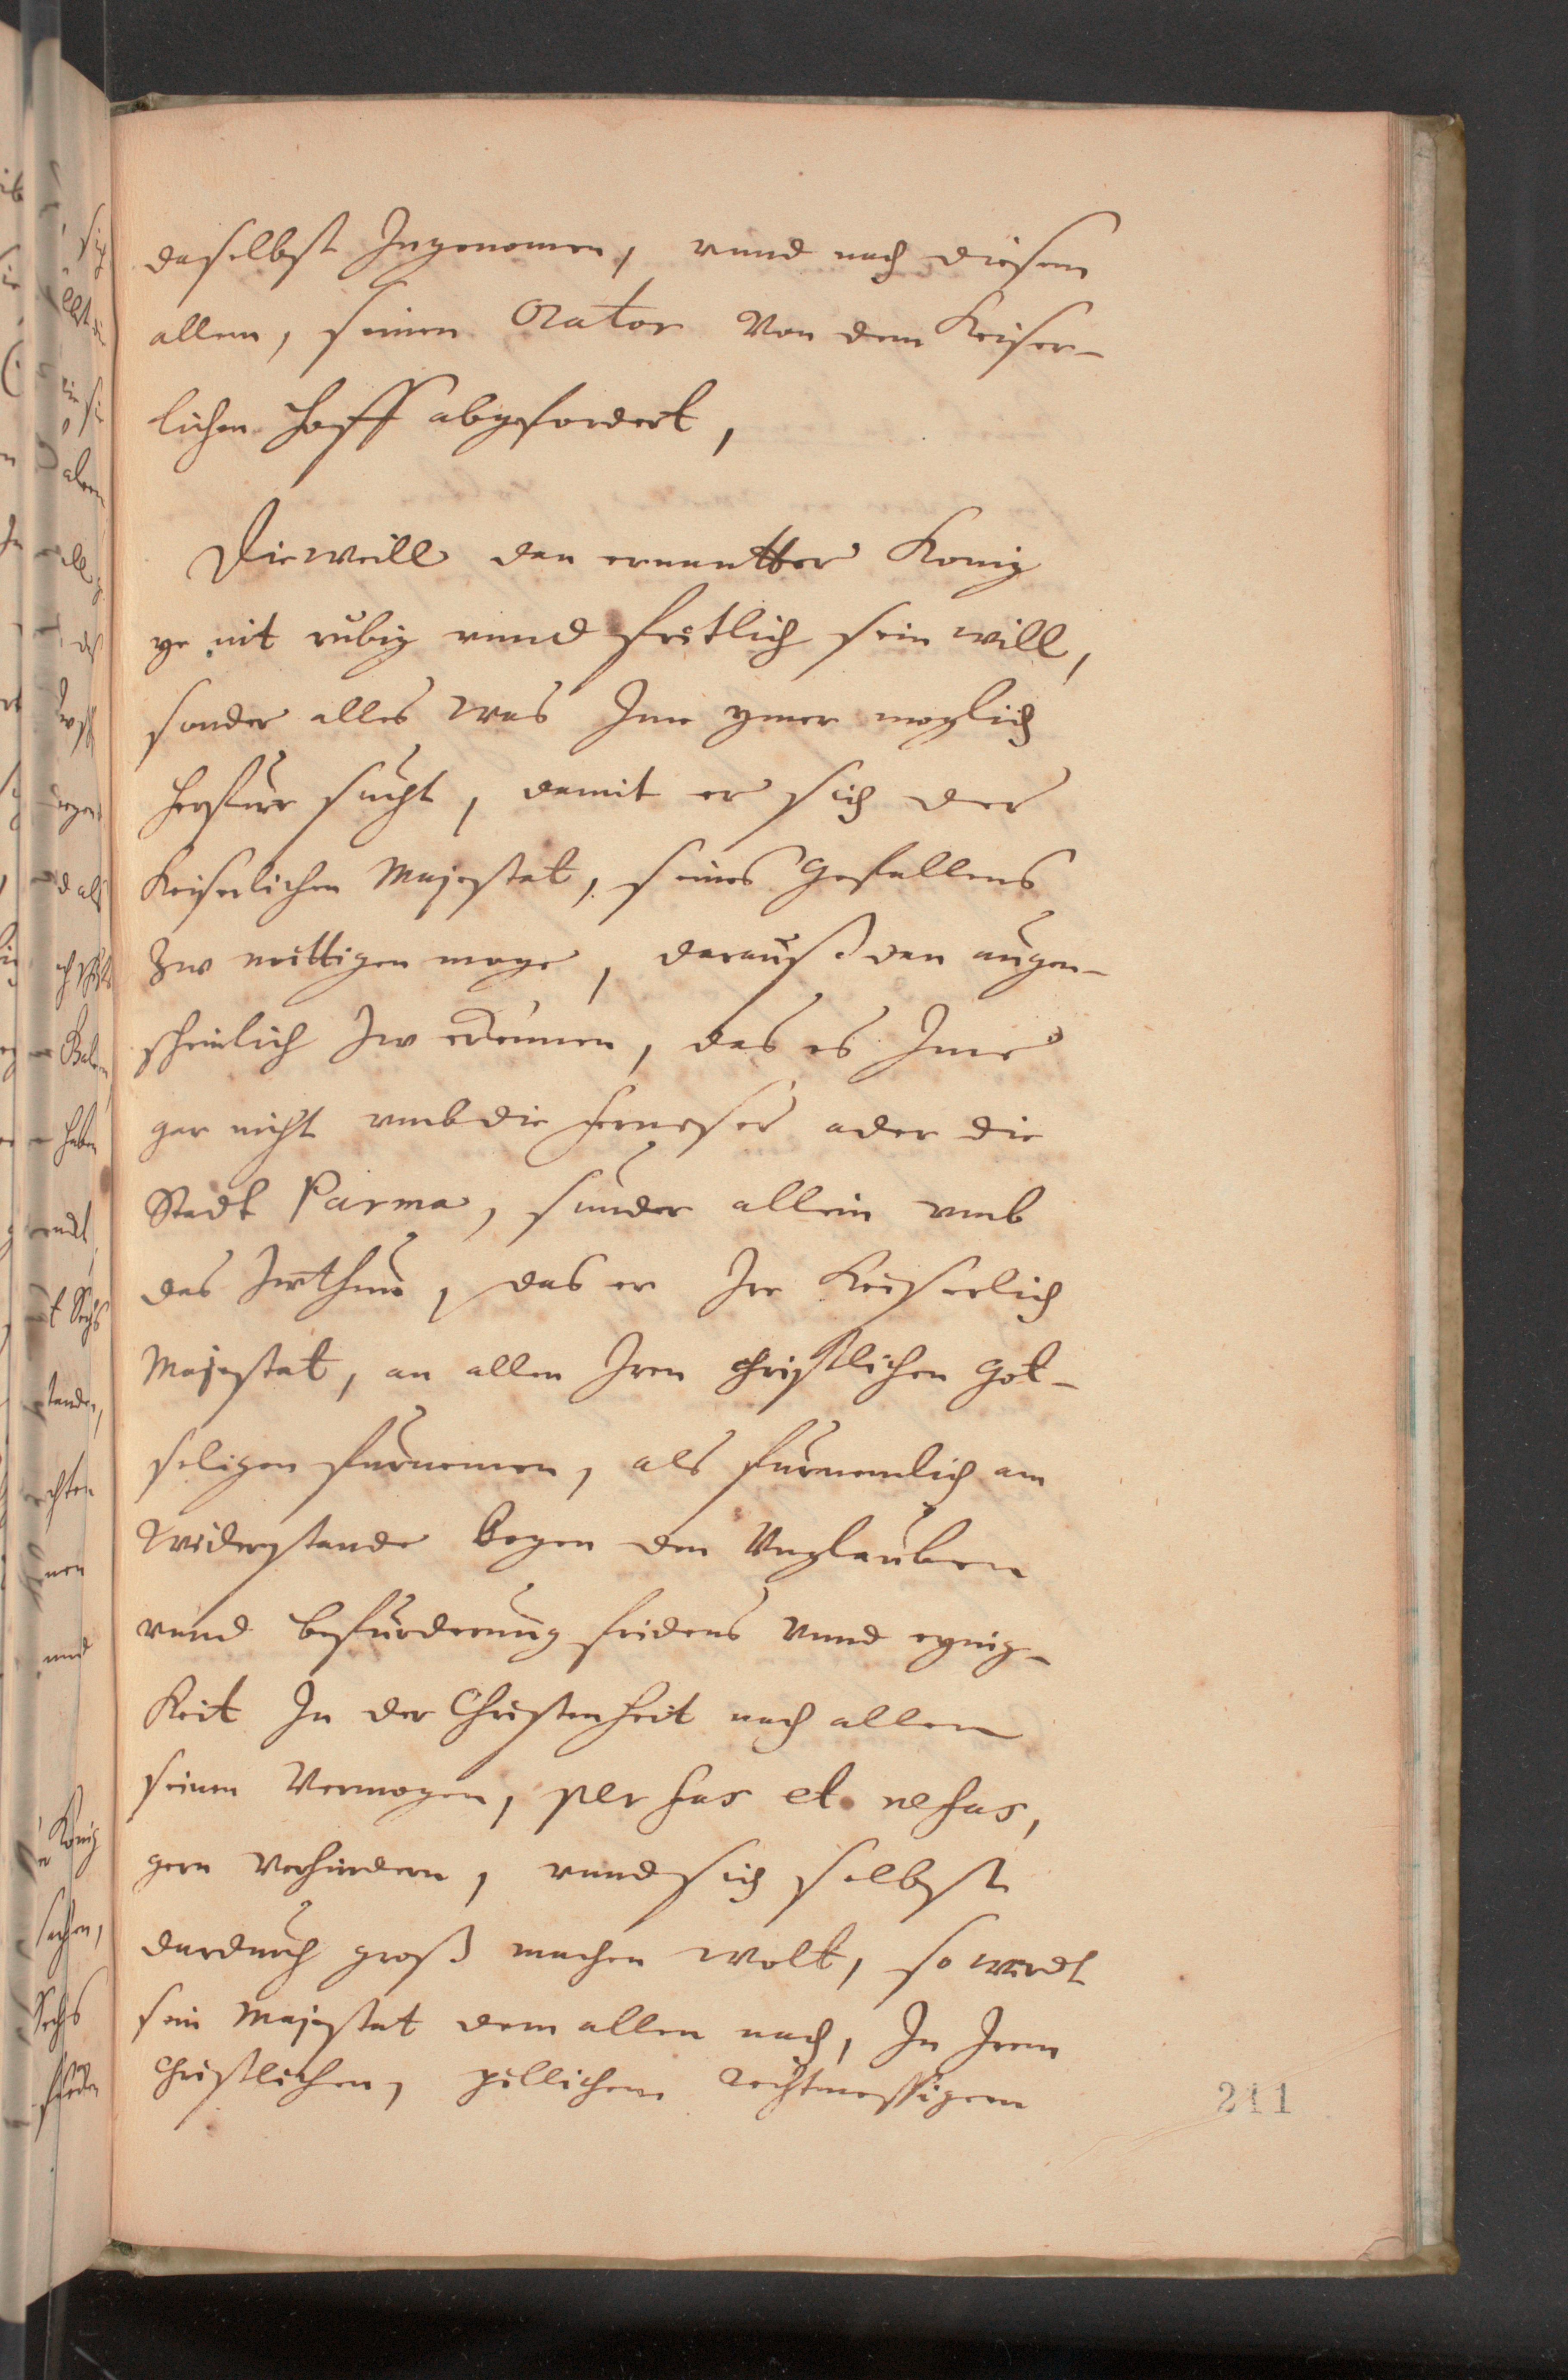 daselbst Ingenomen, vnnd nach diesem
allem, seinen Orator Von dem Keiser-
lichen Hoff abgefordert,
Dieweill dan ernantter Konig
ye nit rubig vnnd fritlich sein will,
sonder alles was Ime ymer moglich
herfur sucht, damit er sich der
Keiserlichen Majestat, seines gefallens
Zw nottigen moge, darauß dan augen-
scheinlich Zw erkennen, das es Ime
gar nicht vmb die Farneser oder die
Stadt Parma, sunder allein vmb
das Irrthum, das er Ire Keiserlich
Majestat, an allen Iren christlichen Got-
seligen furnemen, als furnemlich am
Widerstande kegen den Vnglauben
vnnd befurderung fridens Vnnd eynig-
Keit In der Christenheit nach allem
seinem Vermogen, per fas et nefas,
gern Verhindern, vnnd sich selbst
dardurch groß machen wolt, so wirdt
sein Majestat dem allen nach, In Irem
Christlichen, pillichem Rechtmessigem
211